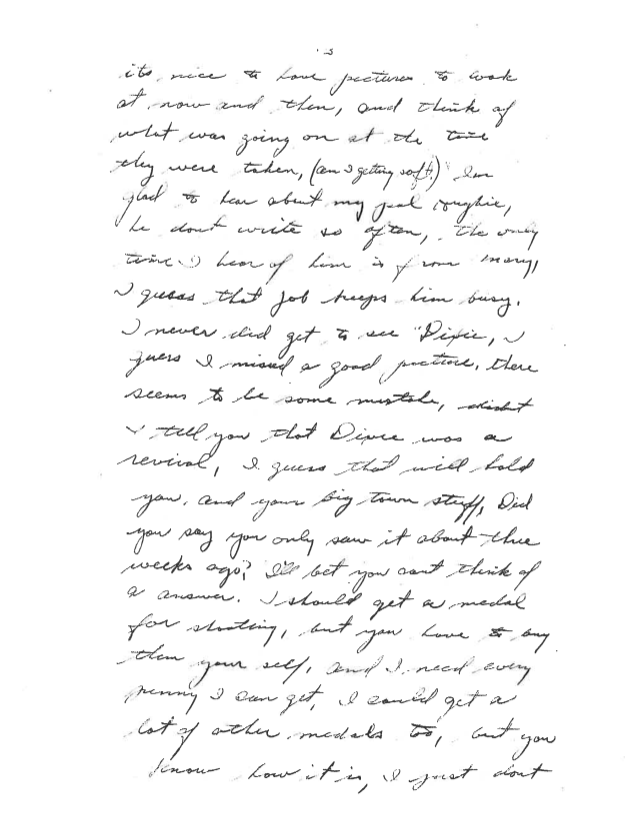 its nice to have pictures to look
at now and then, and think of
what was going on at the time
they were taken, (am I getting soft?) I'm
glad to hear about my pal
he dont write so often, the only
time I hear of him is from Mary,
I guess that job keeps him busy.
I never did get to see "Dixie, I
guess I missed a good picture, there
seems to be some mistake, didnt
I tell you that Dixie was a
revival, I guess that will hold
you, and your big town stuff, Did
you say you only saw it about three
weeks ago? I'll bet you cant think of
a answer. I should get a medal
for shooting, but you have to buy
them your self, and I need every
penny I can get, I could get a
lot of other medals too, but you
know how it is, I just dont